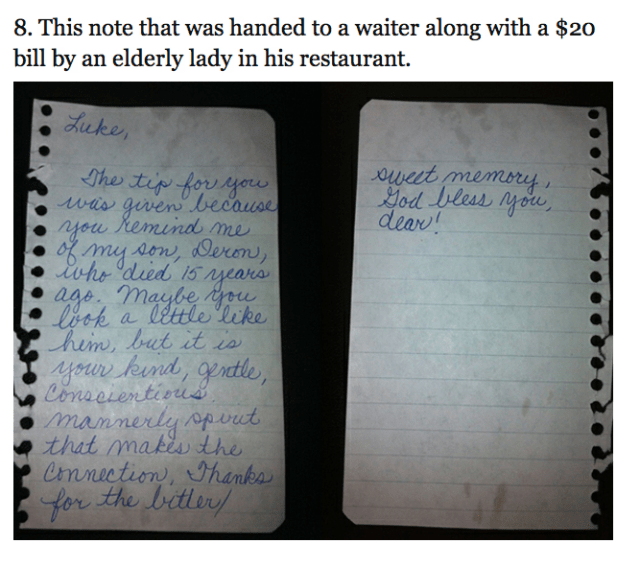 8. This note that was handed to a waiter along with a $20
bill by an elderly lady in his restaurant.
Luke,
The tip for you
was given because
you remind me
of my son, Deron,
who died 15 years
ago. Maybe you
look a little like
him, but it is
your kind, gentle,
Conscientious
mannerly spirit
that makes the
Connection. Thanks
for the bitter/
sweet memory,
God bless you,
dear!